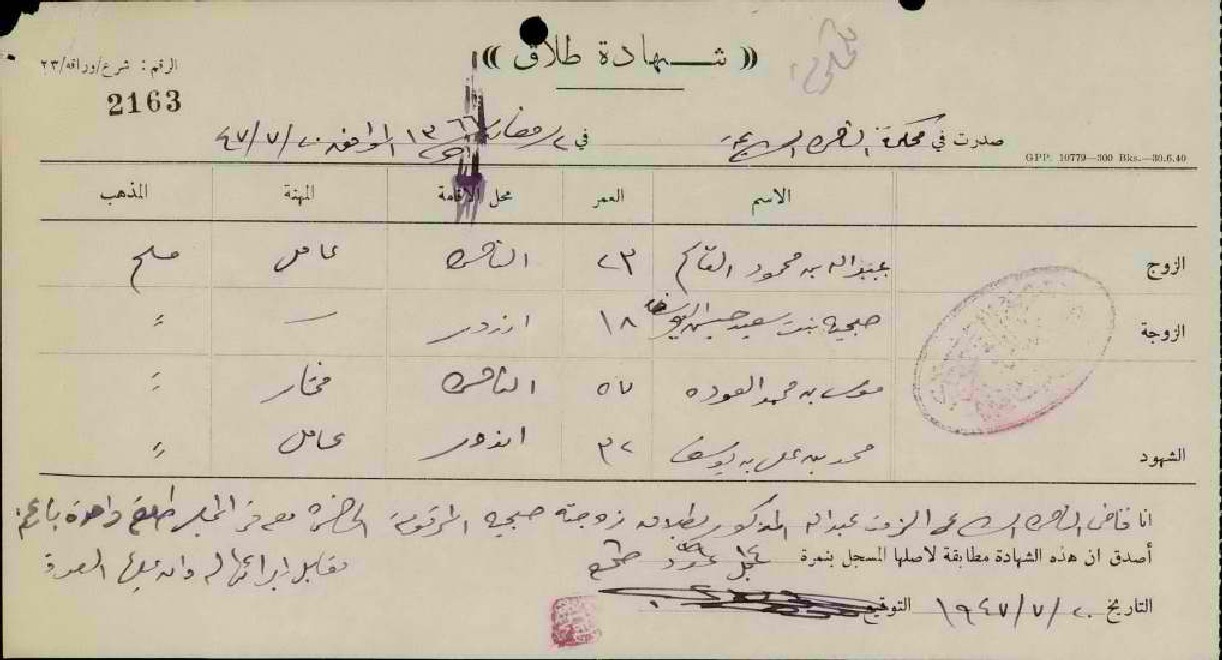 (( شـــهادة طلاق ))
الرقم : شرع/وراقه/٢٣
2163
صدرت في محكمة الناصرة الشرعية في ٢ رمضان ١٣٦٦ الموافق ٢٠/٧/٤٧
G.P.P. 10779—300 Bks.—30.6.40
الاسم العمر محل الاقامة المهنة المذهب
الزوج عبدالله بن محمود القاسم ٢٣ الناصرة عامل مسلم
الزوجة صبحية بنت سعيد حسين اليوسف ١٨ اندور — "
موسى بن محمد العوده ٥٧ الناصرة مختار "
الشهود محمد بن علي بن يوسف ٣٢ اندور عامل "
انا قاضي الناصرة الشرعي الزوج عبدالله المذكور بطلاق زوجته صبحية المرقومة الحاضرة معه في المجلس طلقة واحدة بائنة
أصدق ان هذه الشهادة مطابقة لاصلها المسجل بنمرة مقابل ابرائها له وان عليها العدة
التاريخ ٢٠/٧/١٩٤٧ التوقيع